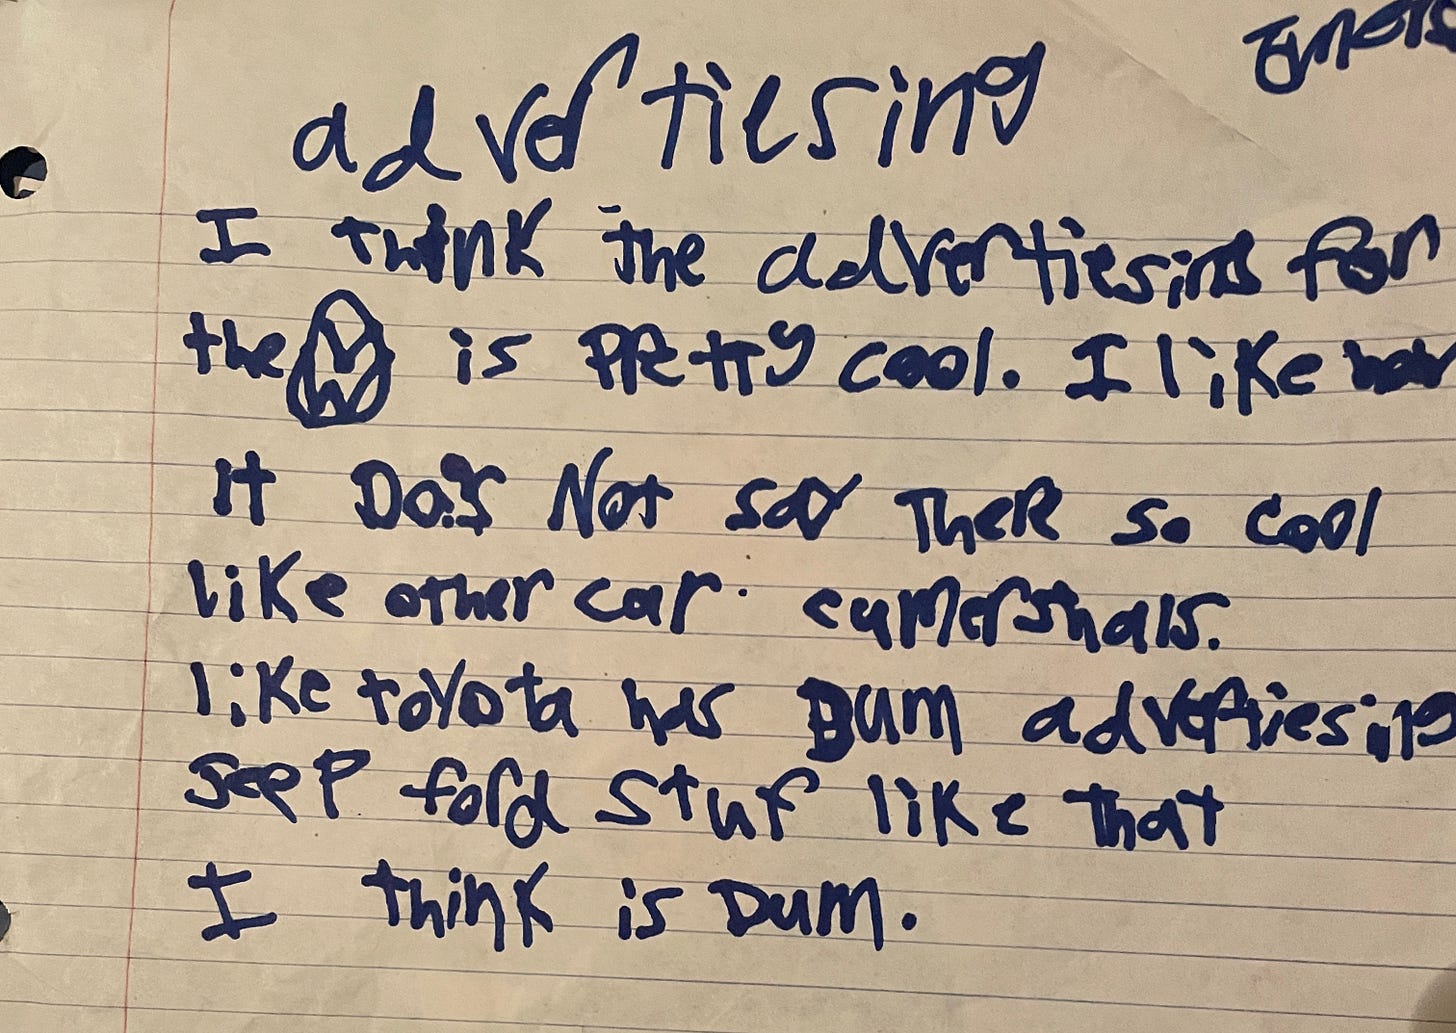 advertiesing
I think the advertiesing for
the VW is PRetty cool. I like how
it Does Not say TheRe so cool
like other car cumershals.
like toyota has Dum advertiesing
jeep ford stuf like that
I think is Dum.